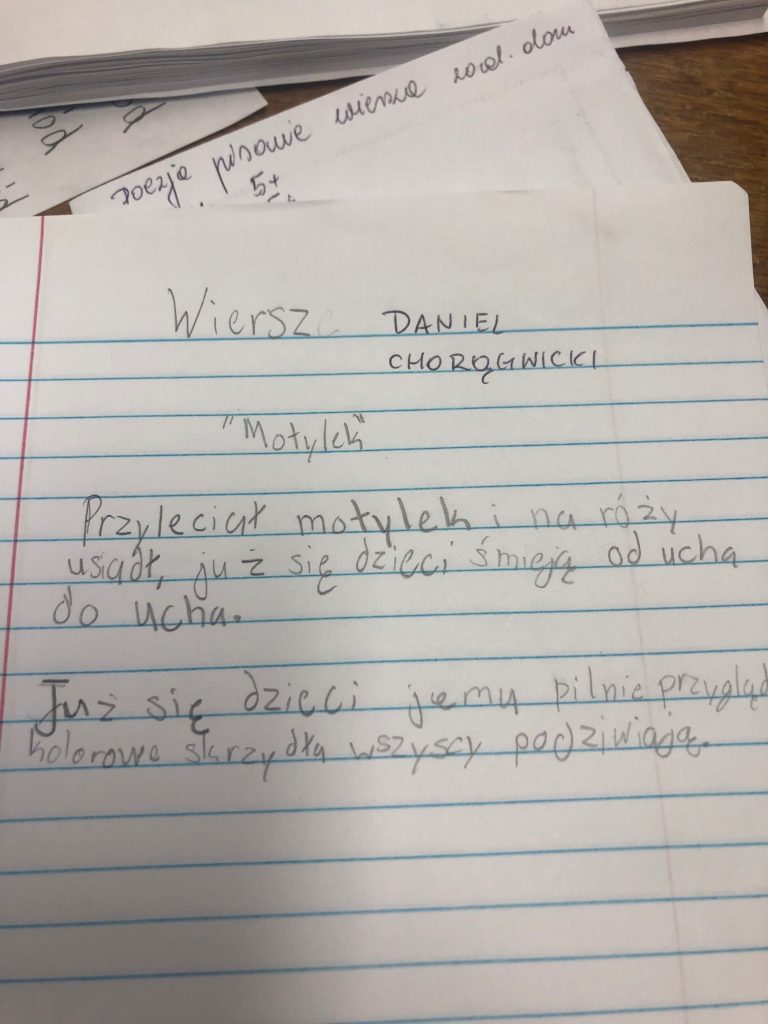 poezja pisanie wiersza zad. dom
5+
Wiersze DANIEL
CHORĄGWICKI
"Motylek"
Przyleciał motylek i na róży
usiadł, już się dzieci śmieją od ucha
do ucha.
Już się dzieci jemu pilnie przygląd
kolorowe skrzydła wszyscy podziwiają.